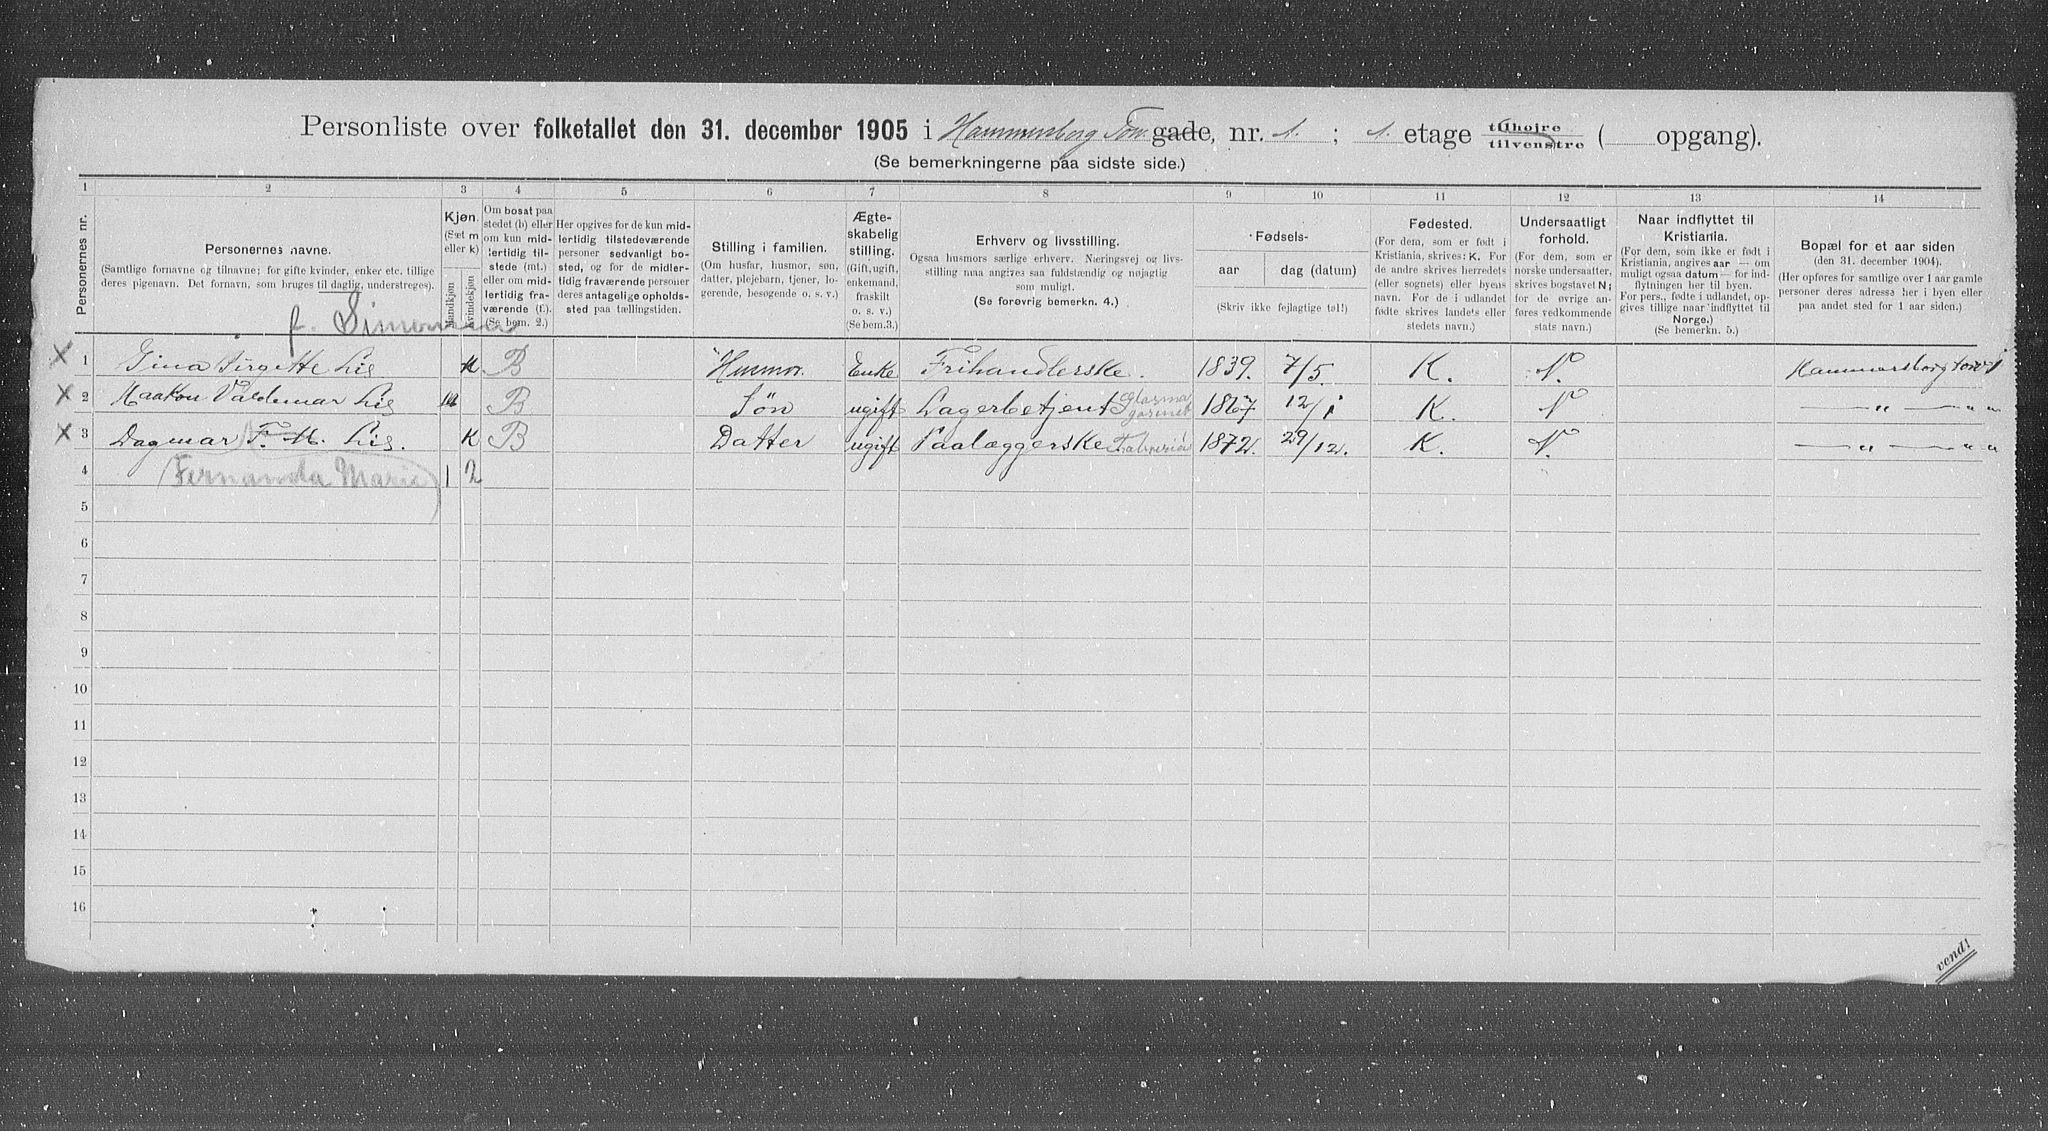 Personliste over folketallet den 31. december 1905 i Hammersborg Torv gade, nr. 1. ; 1. etage tilhøjre tilvenstre ( opgang).
(Se bemerkningerne paa sidste side.)
1 2 3 4 5 6 7 8 9 10 11 12 13 14
Personernes nr.
Personernes navne.
(Samtlige fornavne og tilnavne; for gifte kvinder, enker etc. tillige
deres pigenavn. Det fornavn, som bruges til daglig, understreges).
Kjøn.
(Sæt m
eller k)
Mandkjøn
Kvindekjøn
Om bosat paa
stedet (b) eller
om kun mid-
lertidig til-
stede (mt.)
eller om mid-
lertidig fra-
værende (f.).
(Se bem. 2.)
Her opgives for de kun mid-
lertidig tilstedeværende
personer sedvanligt bo-
sted, og for de midler-
tidig fraværende personer
deres antagelige opholds-
sted paa tællingstiden.
Stilling i familien.
(Om husfar, husmor, søn,
datter, plejebarn, tjener, lo-
gerende, besøgende o. s. v.)
Ægte-
skabelig
stilling.
(Gift, ugift,
enkemand,
fraskilt
o. s. v.)
(Se bem. 3.)
Erhverv og livsstilling.
Ogsaa husmors særlige erhverv. Næringsvej og livs-
stilling maa angives saa fuldstændig og nøjagtig
som muligt.
(Se forøvrig bemerkn. 4.)
Fødsels-
aar
dag (datum)
(Skriv ikke fejlagtige tal!)
Fødested.
(For dem, som er født i
Kristiania, skrives: K. For
de andre skrives herredets
(eller sognets) eller byens
navn. For de i udlandet
fødte skrives landets eller
stedets navn.)
Undersaatligt
forhold.
(For dem, som er
norske undersaatter,
skrives bogstavet N;
for de øvrige an-
føres vedkommende
stats navn.)
Naar indflyttet til
Kristiania.
(For dem, som ikke er født i
Kristiania, angives aar — om
muligt ogsaa datum — for ind-
flytningen her til byen.
For pers., fødte i udlandet, op-
gives tillige naar indflyttet til
Norge.)
(Se bemerkn. 5.)
Bopæl for et aar siden
(den 31. december 1904).
(Her opføres for samtlige over 1 aar gamle
personer deres adresse her i byen eller
paa andet sted for 1 aar siden.)
f. Simonsen
X 1 Gina Birgitte Lie K B Husmor. Enke Frihandlerske. 1839. 7/5. K. N. Hammersborg torv 1
X 2 Haakon Valdemar Lie m B Søn ugift Lagerbetjent Glasmagasinet 1867 12/1 K. N — " — " "
X 3 Dagmar F. M. Lie. K B Datter ugift Paalæggerske 1872. 29/12. K. N. — " — " "
4 (Fernanda Marie) 1 2
5
6
7
8
9
10
11
12
13
14
15
16
vend!